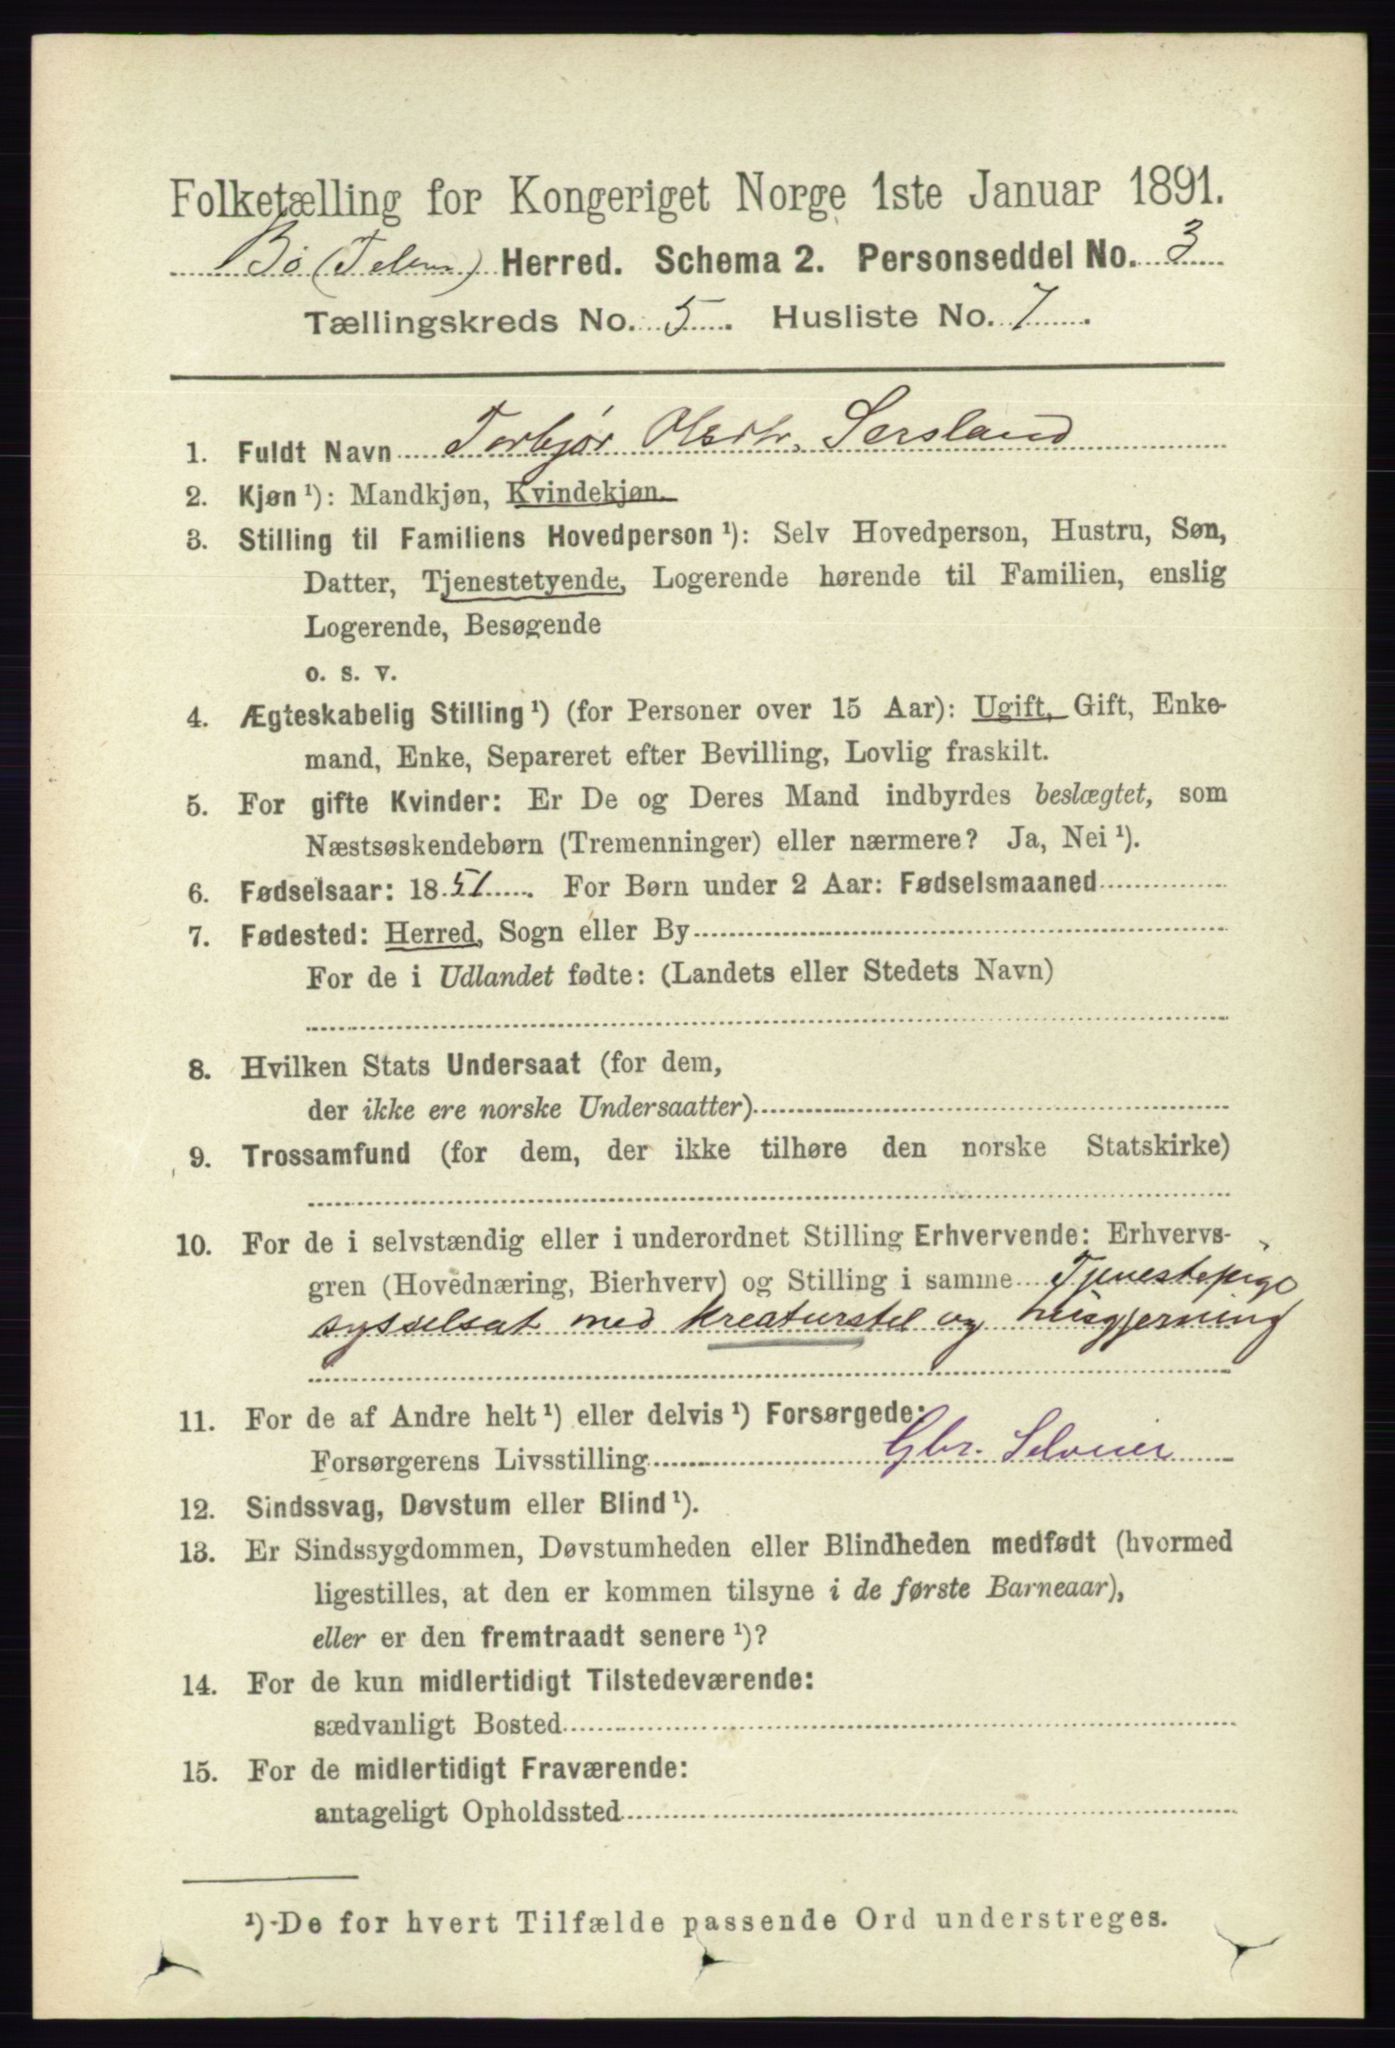 Folketælling for Kongeriget Norge 1ste Januar 1891.
Bø (Telem.) Herred. Schema 2. Personseddel No. 3
Tællingskreds No. 5. Husliste No. 7.
1. Fuldt Navn Torbjør Olsdtr. Sersland
2. Kjøn ¹): Mandkjøn, Kvindekjøn.
3. Stilling til Familiens Hovedperson ¹): Selv Hovedperson, Hustru, Søn,
Datter, Tjenestetyende, Logerende hørende til Familien, enslig
Logerende, Besøgende
o. s. v.
4. Ægteskabelig Stilling ¹) (for Personer over 15 Aar): Ugift, Gift, Enke-
mand, Enke, Separeret efter Bevilling, Lovlig fraskilt.
5. For gifte Kvinder: Er De og Deres Mand indbyrdes beslægtet, som
Næstsøskendebørn (Tremenninger) eller nærmere? Ja, Nei ¹).
6. Fødselsaar: 1851. For Børn under 2 Aar: Fødselsmaaned
7. Fødested: Herred, Sogn eller By
For de i Udlandet fødte: (Landets eller Stedets Navn)
8. Hvilken Stats Undersaat (for dem,
der ikke ere norske Undersaatter)
9. Trossamfund (for dem, der ikke tilhøre den norske Statskirke)
10. For de i selvstændig eller i underordnet Stilling Erhvervende: Erhvervs-
gren (Hovednæring, Bierhverv) og Stilling i samme Tjenestepige
sysselsat med kreaturstel og husgjerning
11. For de af Andre helt ¹) eller delvis ¹) Forsørgede:
Forsørgerens Livsstilling Gbr. Selveier
12. Sindssvag, Døvstum eller Blind ¹).
13. Er Sindssygdommen, Døvstumheden eller Blindheden medfødt (hvormed
ligestilles, at den er kommen tilsyne i de første Barneaar),
eller er den fremtraadt senere ¹)?
14. For de kun midlertidigt Tilstedeværende:
sædvanligt Bosted
15. For de midlertidigt Fraværende:
antageligt Opholdssted
¹) De for hvert Tilfælde passende Ord understreges.